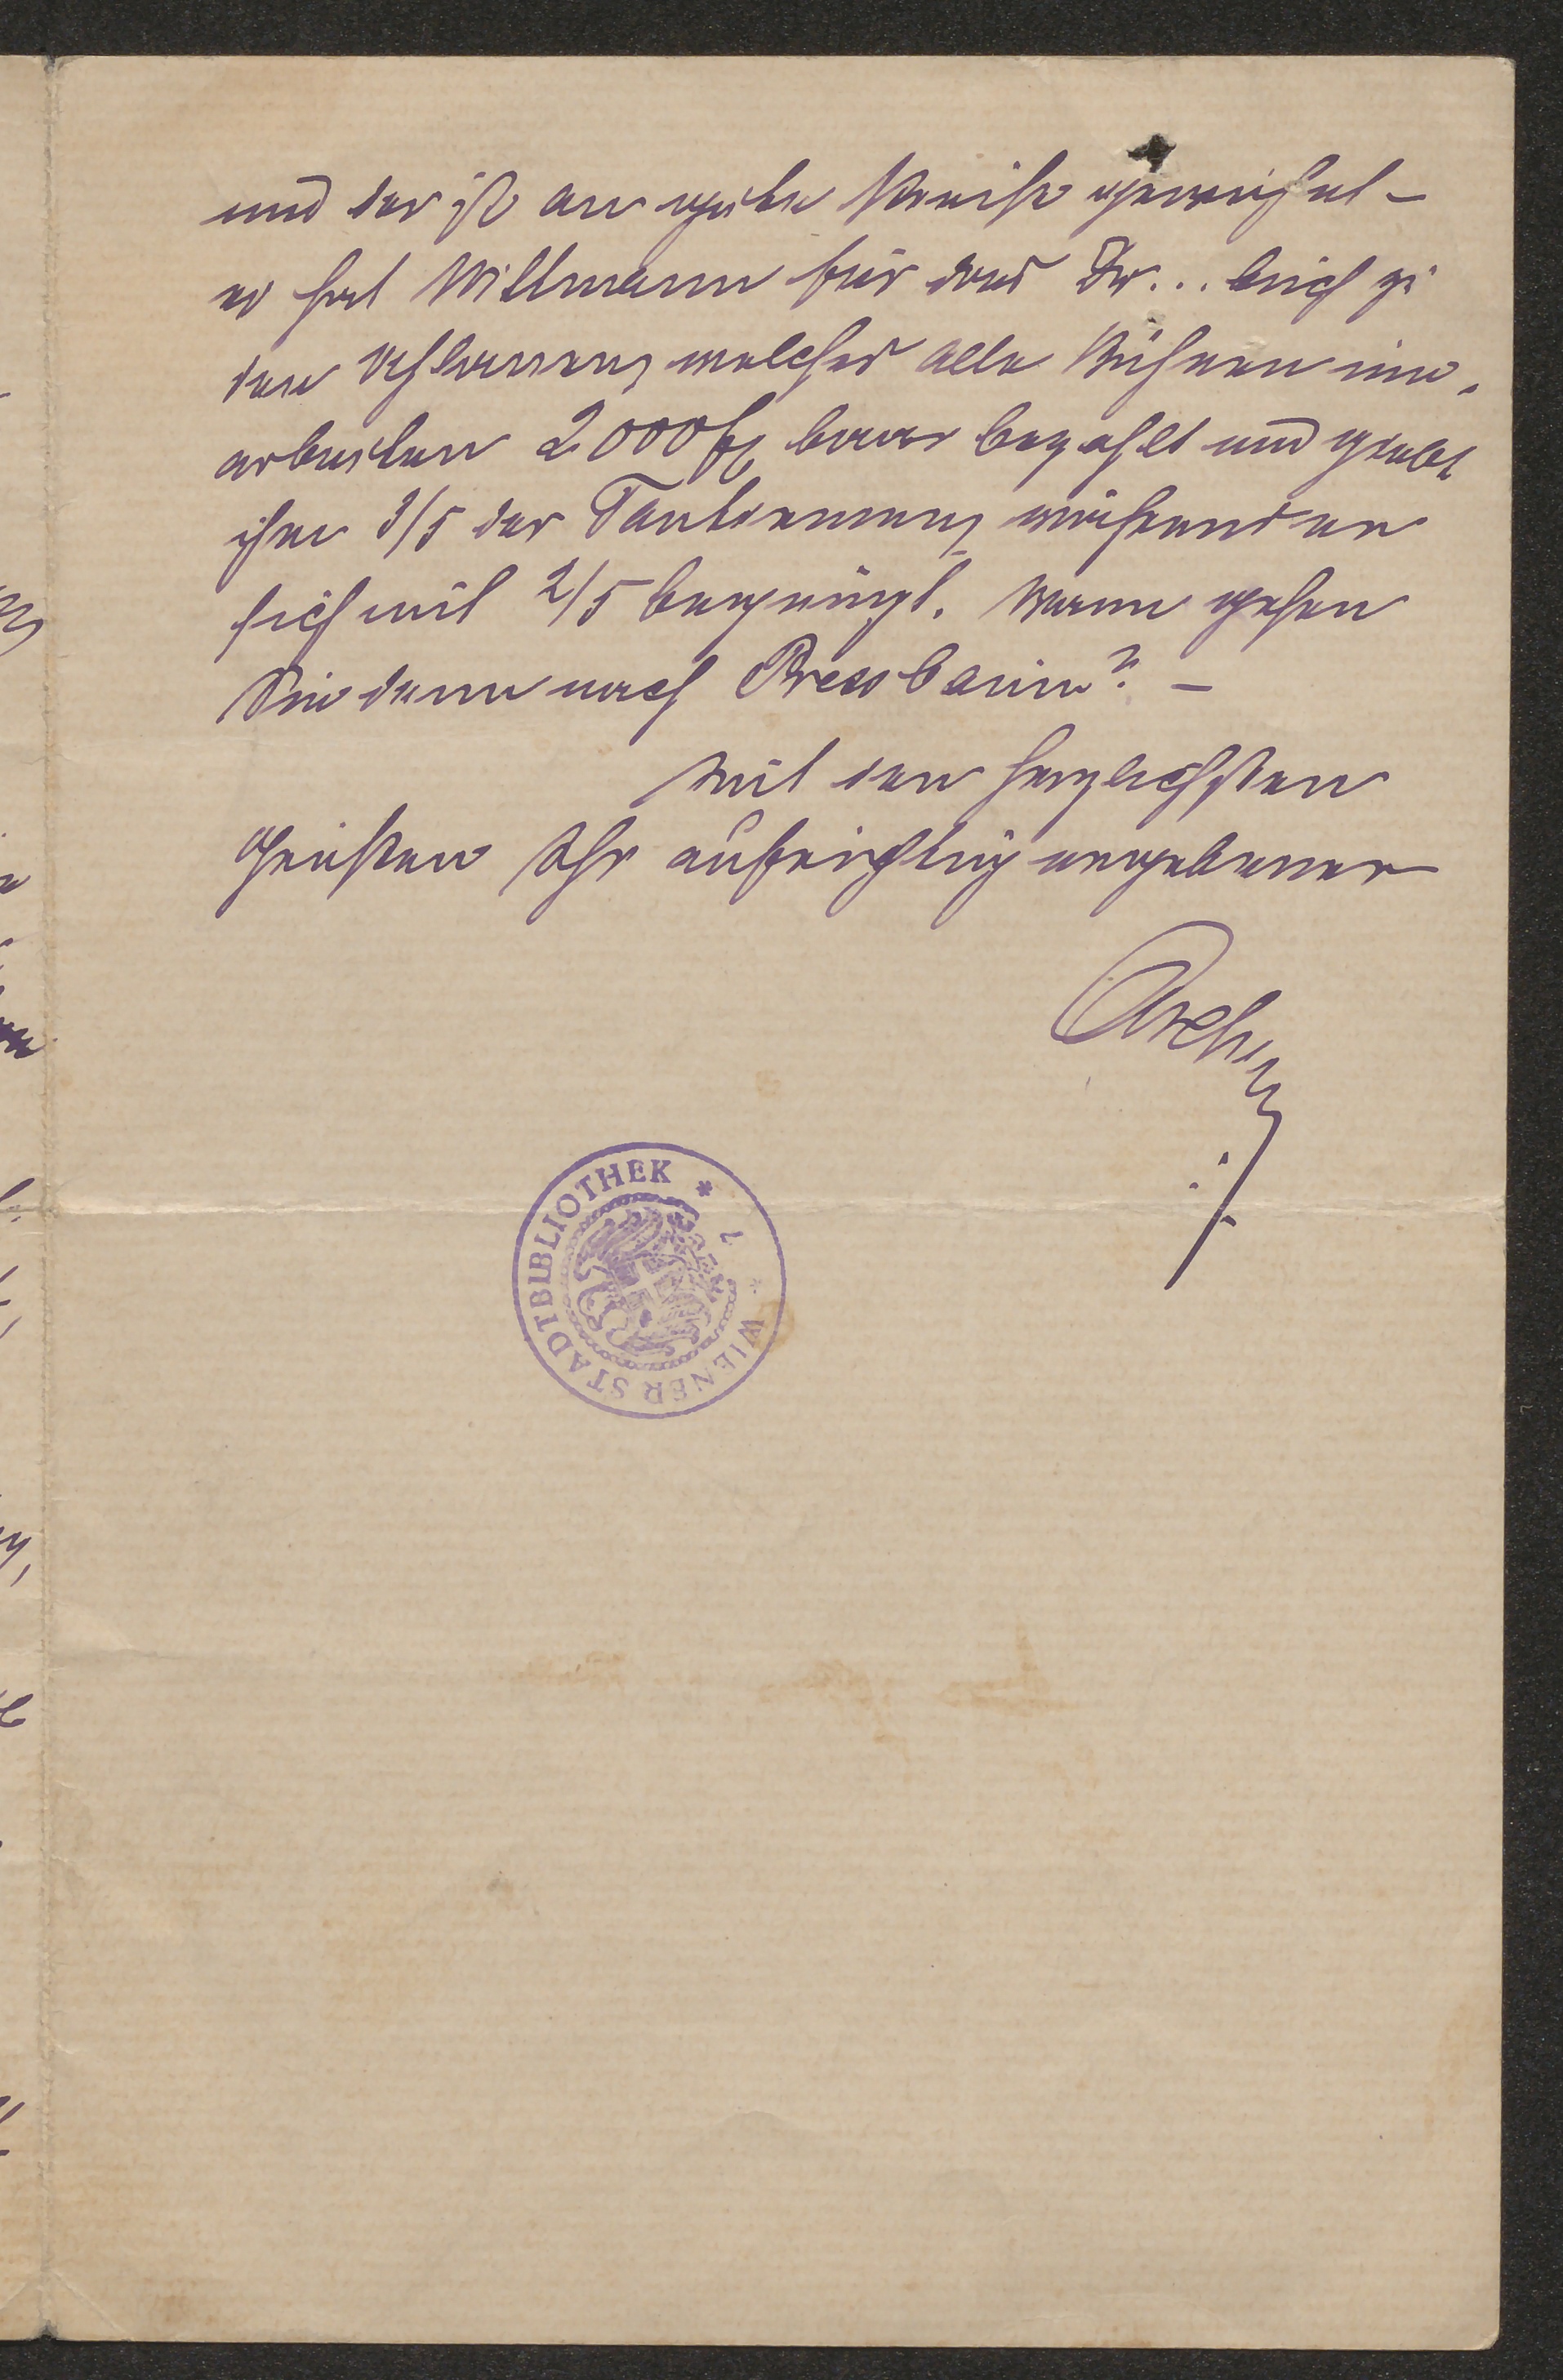 und der ist an gute Preise gewöhnt –
er hat Wittmann für das Dr... buch zu
den welches alle Bühnen
2000 fl baar bezahlt und giebt
ihm 3/5 der Tantiemen, während er
sich mit 2/5 begnügt. Wann gehen
Sie denn nach Pressbaum? –
Mit den herzlichsten
Grüßen Ihr aufrichtig ergebener
WIENER STADTBIBLIOTHEK